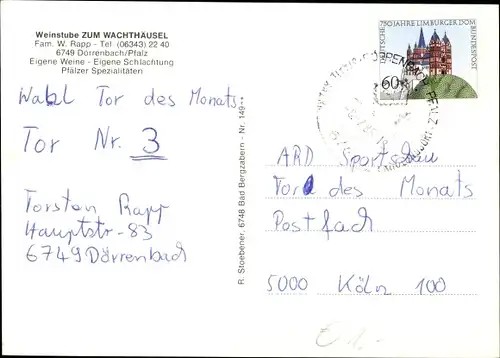 Weinstube ZUM WACHTHÄUSEL
Fam. W. Rapp - Tel (06343) 22 40
6749 Dörrenbach/Pfalz
Eigene Weine - Eigene Schlachtung
Pfälzer Spezialitäten
Wahl Tor des Monats:
Tor Nr. 3
Torsten Rapp
Hauptstr-83
6749 Dörrenbach
R. Stoebener, 6748 Bad Bergzabern - Nr. 149
750 JAHRE LIMBURGER DOM
DEUTSCHE
BUNDESPOST
60
DÖRRENBACH PFALZ
ARD Sportschau
Tor des Monats
Postfach
5000 Köln 100